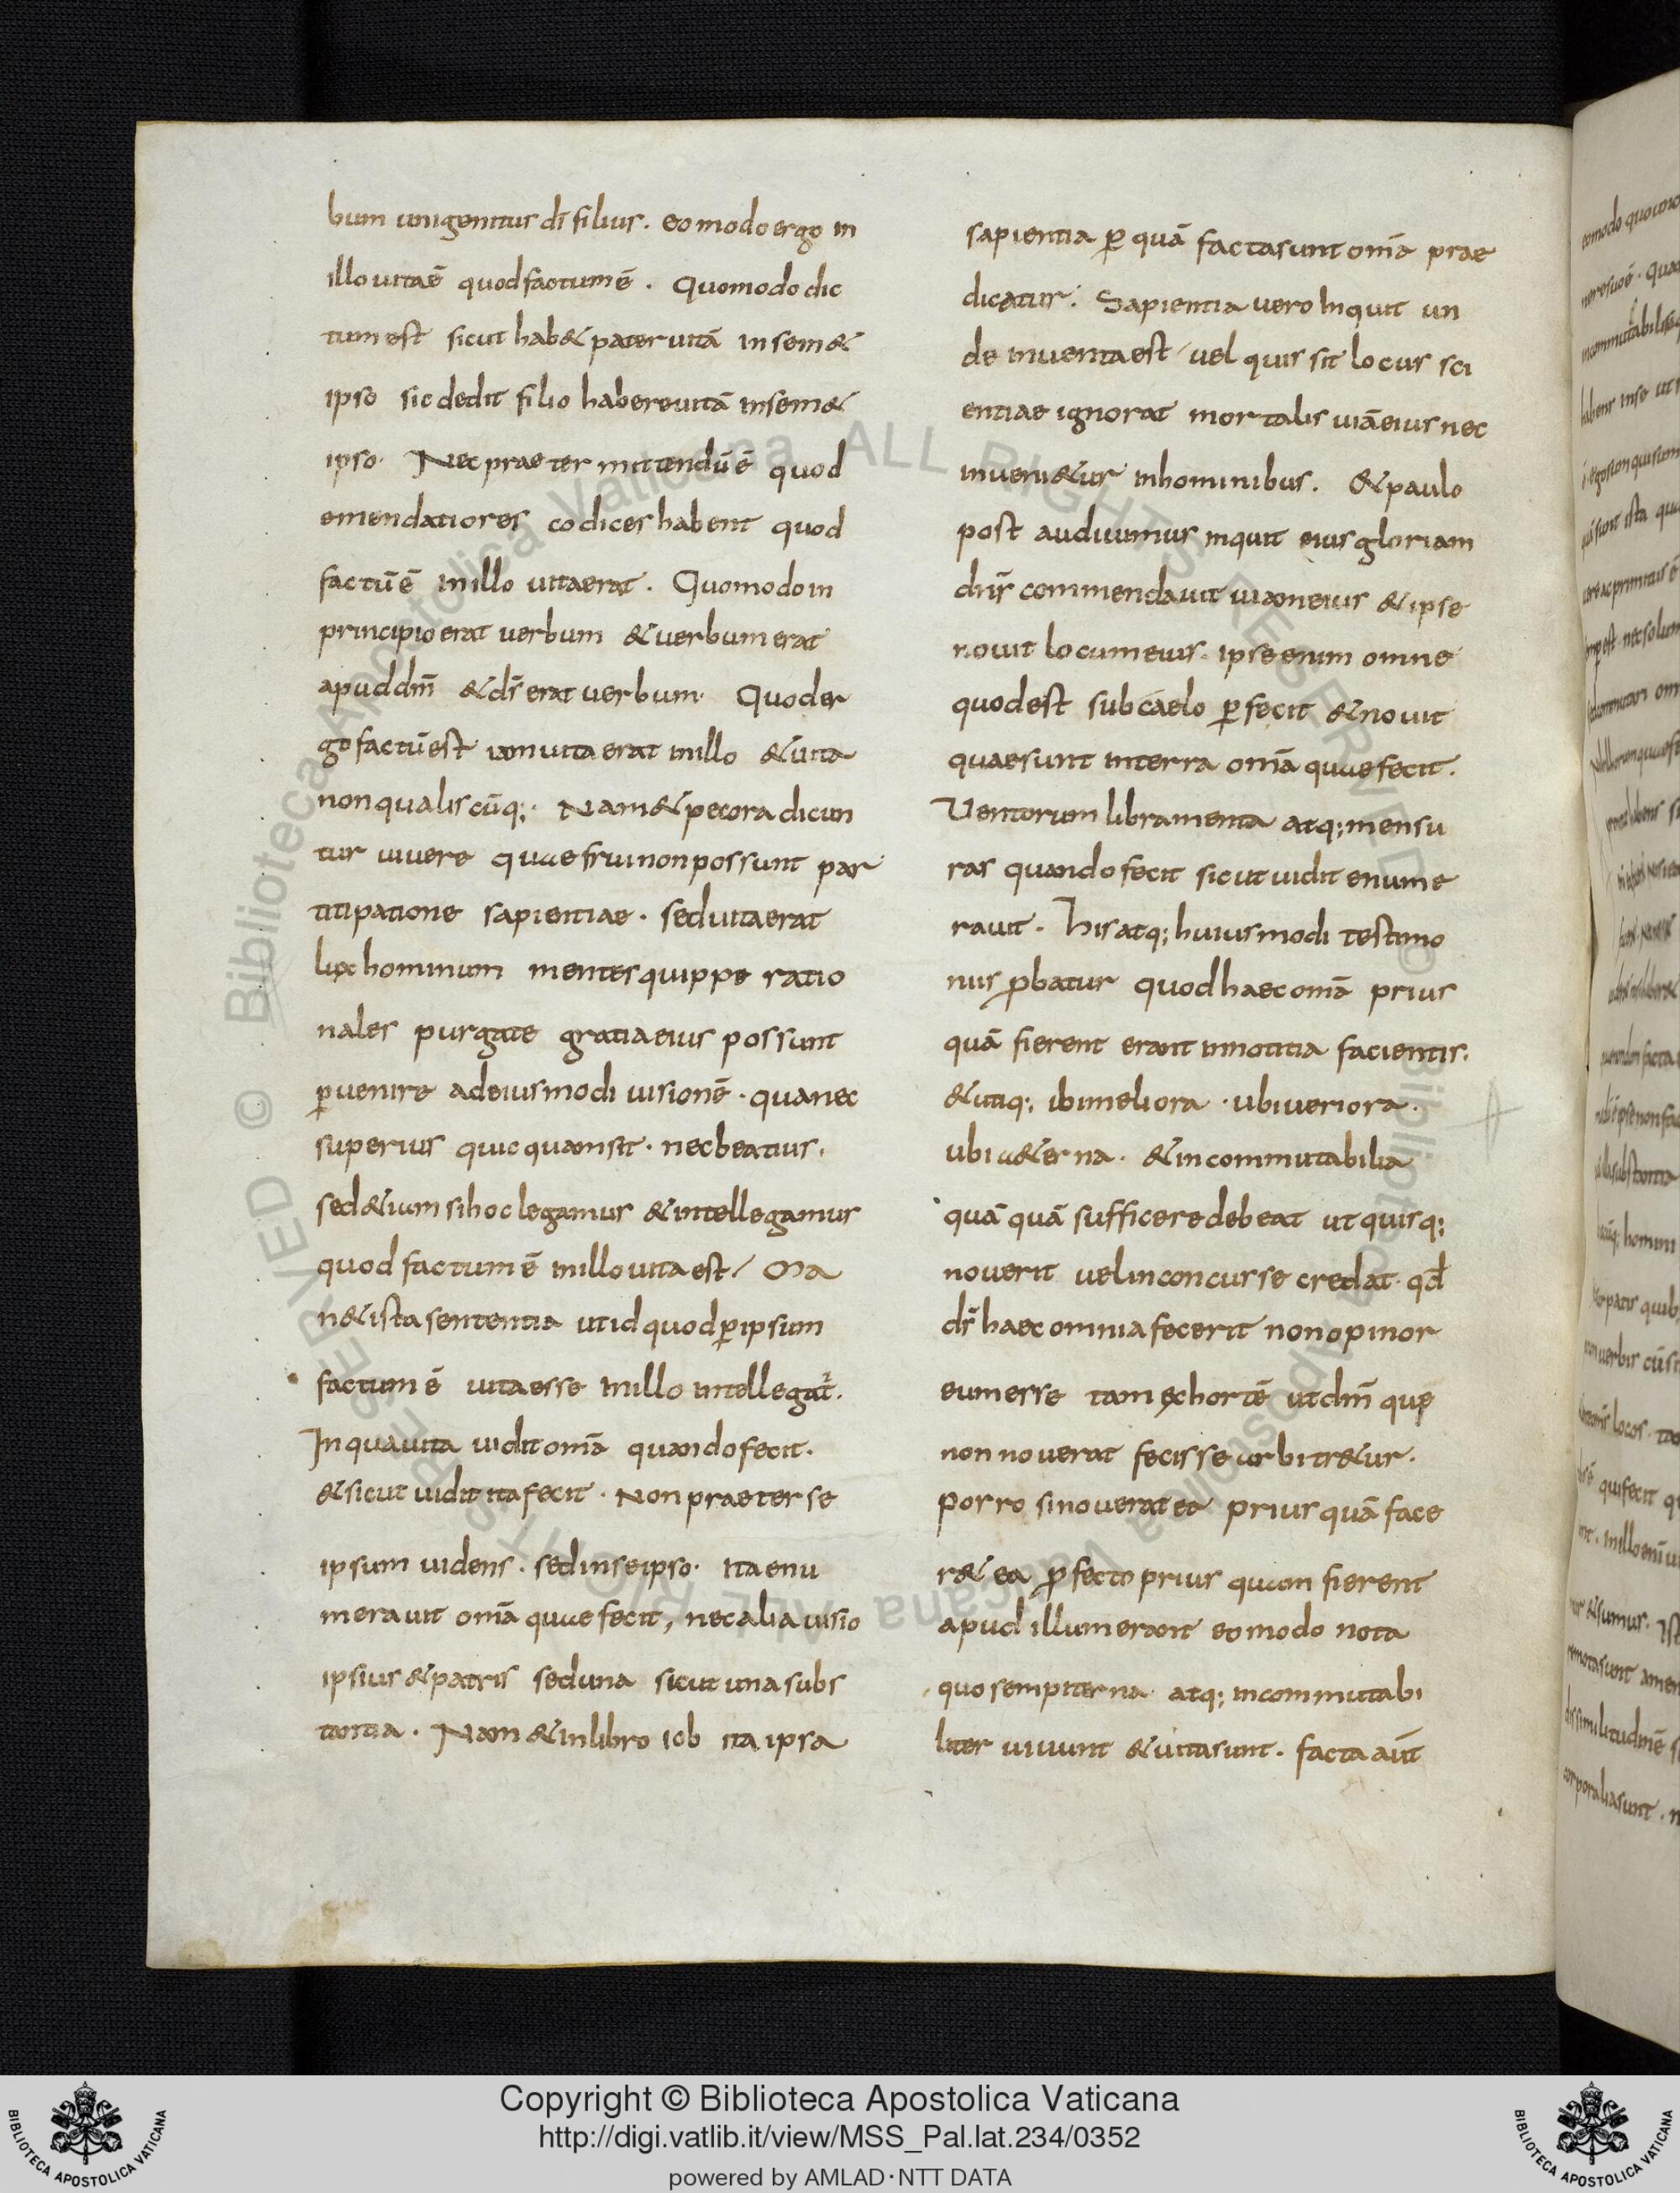 bum unigenitus dī filius. eo modo ergo in
illo uita ē quod factum ē. Quomodo dic
tum est sicut hab& pater uitā in sem&
ipso sic dedit filio habere uitā in sem&
ipso. Nec praetermittendū ē quod
emendatiores codices habent quod
factū ē in illo uita erat. Quomodo in
principio erat uerbum & uerbum erat
apud dm̄ & ds̄ erat uerbum. Quod er
go factū est iam uita erat in illo & uita
non qualiscūq;. Nam & pecora dicun
tur uiuere quae frui non possunt par
titipatione sapientiae. sed uita erat
lux hominum mentes quippe ratio
nales purgate gratia eius possunt
ꝑuenire ad eiusmodi uisionē. qua nec
superius quicquam sit. nec beatius.
sed &ium si hoc legamus & intellegamus
quod factum ē in illo uita est / Ma
n& ista sententia ut id quod ꝑ ipsum
factum ē uita esse in illo intellegat̄.
In qua uita uidit omā quando fecit.
& sicut uidit ita fecit. Non praeter se
ipsum uidens. sed in se ipso. Ita enu
merauit omā quae fecit, nec alia uisio
ipsius & patris sed una sicut una subs
tantia. Nam & in libro iob ita ipsa
sapientia ꝑ quā facta sunt omā prae
dicatur. Sapientia uero inquit un
de inuenta est / uel quis sit locus sci
entiae ignorat mortalis uiā eius nec
inueni&ur in hominibus. & paulo
post audiuimus inquit eius gloriam
dn̄s commendauit uiam eius & ipse
nouit locum eius. ipse enim omne
quod est sub caelo ꝑfecit & nouit
quae sunt in terra omā quae fecit.
Uentorum libramenta atq; mensu
ras quando fecit sicut uidit enume
rauit. his atq; huiusmodi testimo
niis ꝓbatur quod haec omā prius
quā fierent erant in notitia facientis.
& utiq; ibi meliora. ubi ueriora.
ubi a&erna. & incommutabilia
quā quā sufficere debeat ut quisq;
nouerit uel inconcusse credat. qđ
ds̄ haec omnia fecerit non opinor
eum esse tam exchortē ut dm̄ quę
non nouerat fecisse arbitr&ur.
porro si nouerat ea prius quā face
r& ea ꝓfecto prius quam fierent
apud illum erant eo modo nota
quo sempiterna. atq; incommutabi
liter uiuunt & uita sunt. facta aūt
Copyright © Biblioteca Apostolica Vaticana
http://digi.vatlib.it/view/MSS_Pal.lat.234/0352
powered by AMLAD·NTT DATA